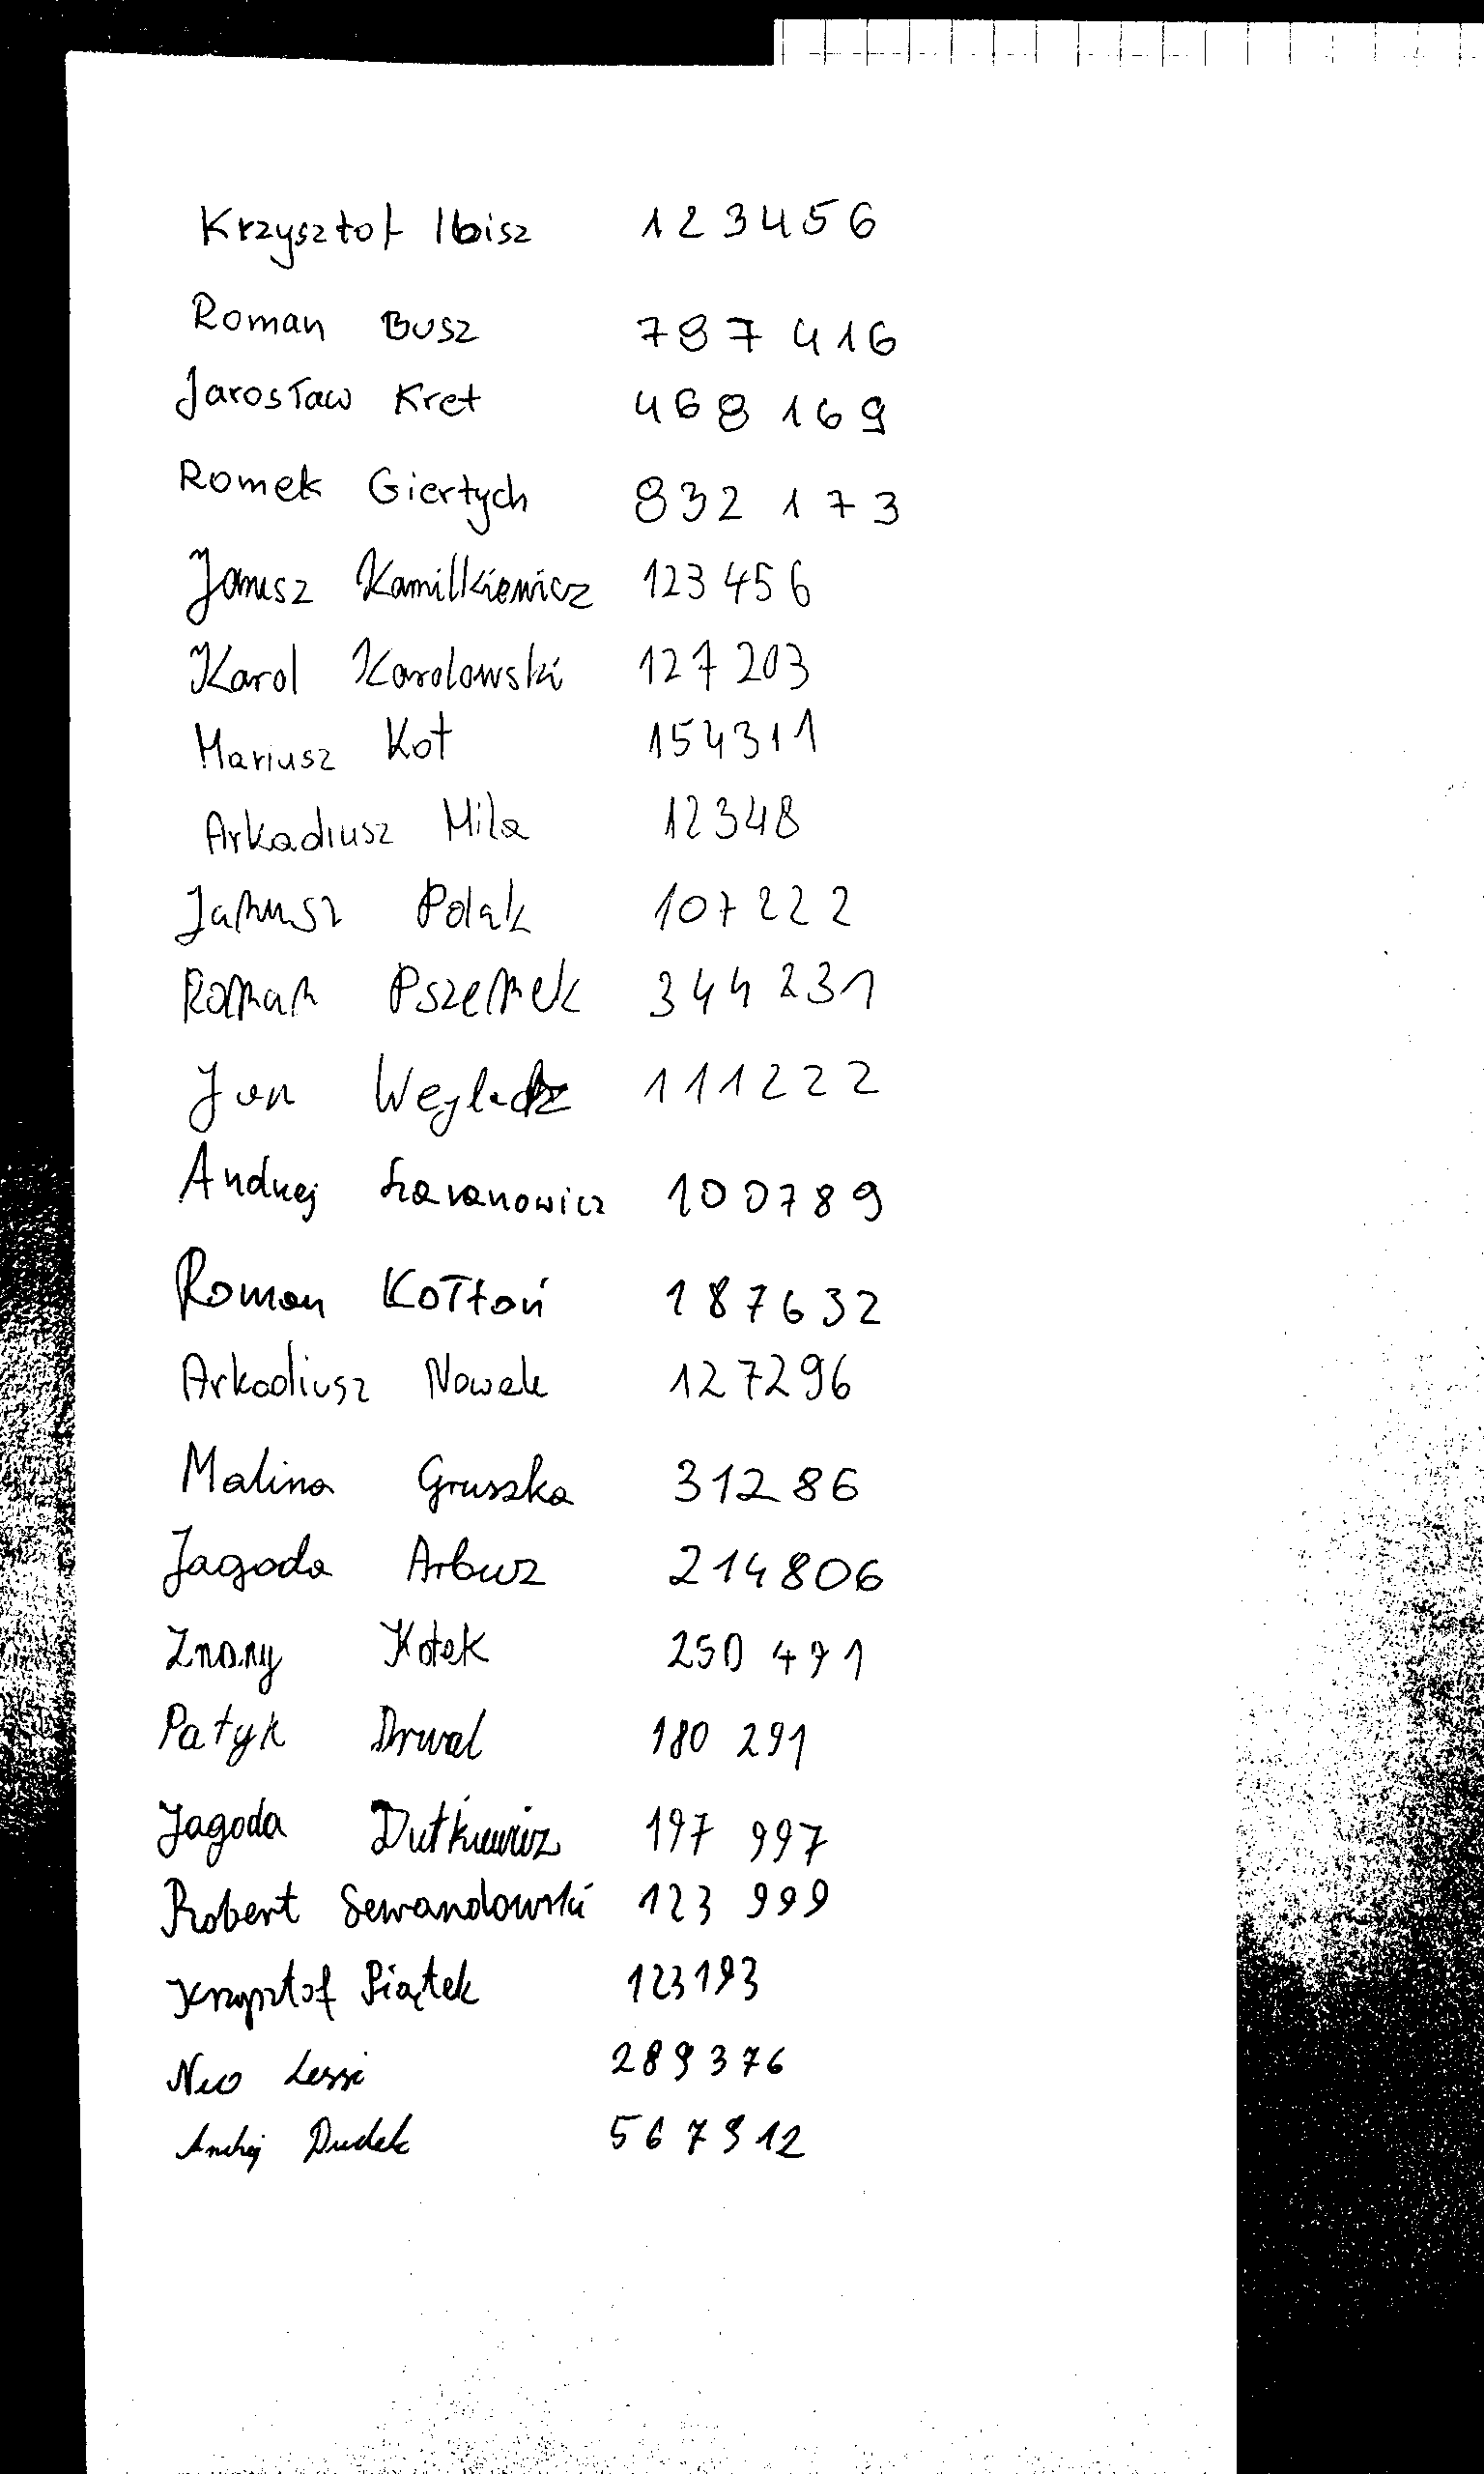 Krzysztof Ibisz 123456
Roman Busz 787 416
Jarosław Kret 468 169
Romek Giertych 832 173
Janusz Kamilkiewicz 123 456
Karol Karolowski 127 203
Mariusz Kot 154311
Arkadiusz Mila 12348
Janusz Polak 107222
Roman Pszemek 344 231
Jan 111222
Andrzej 100789
Roman Kołtoń 187632
Arkadiusz Nowak 127296
Malina Gruszka 31286
Jagoda Arbuz 214806
Znany Kotek 250 491
Patyk Drwal 180 291
Jagoda Dutkiewicz 197 997
Robert Sewandowski 123 999
Krzysztof Piątek 123193
Neo Lessi 289376
Andrzej Dudek 567912